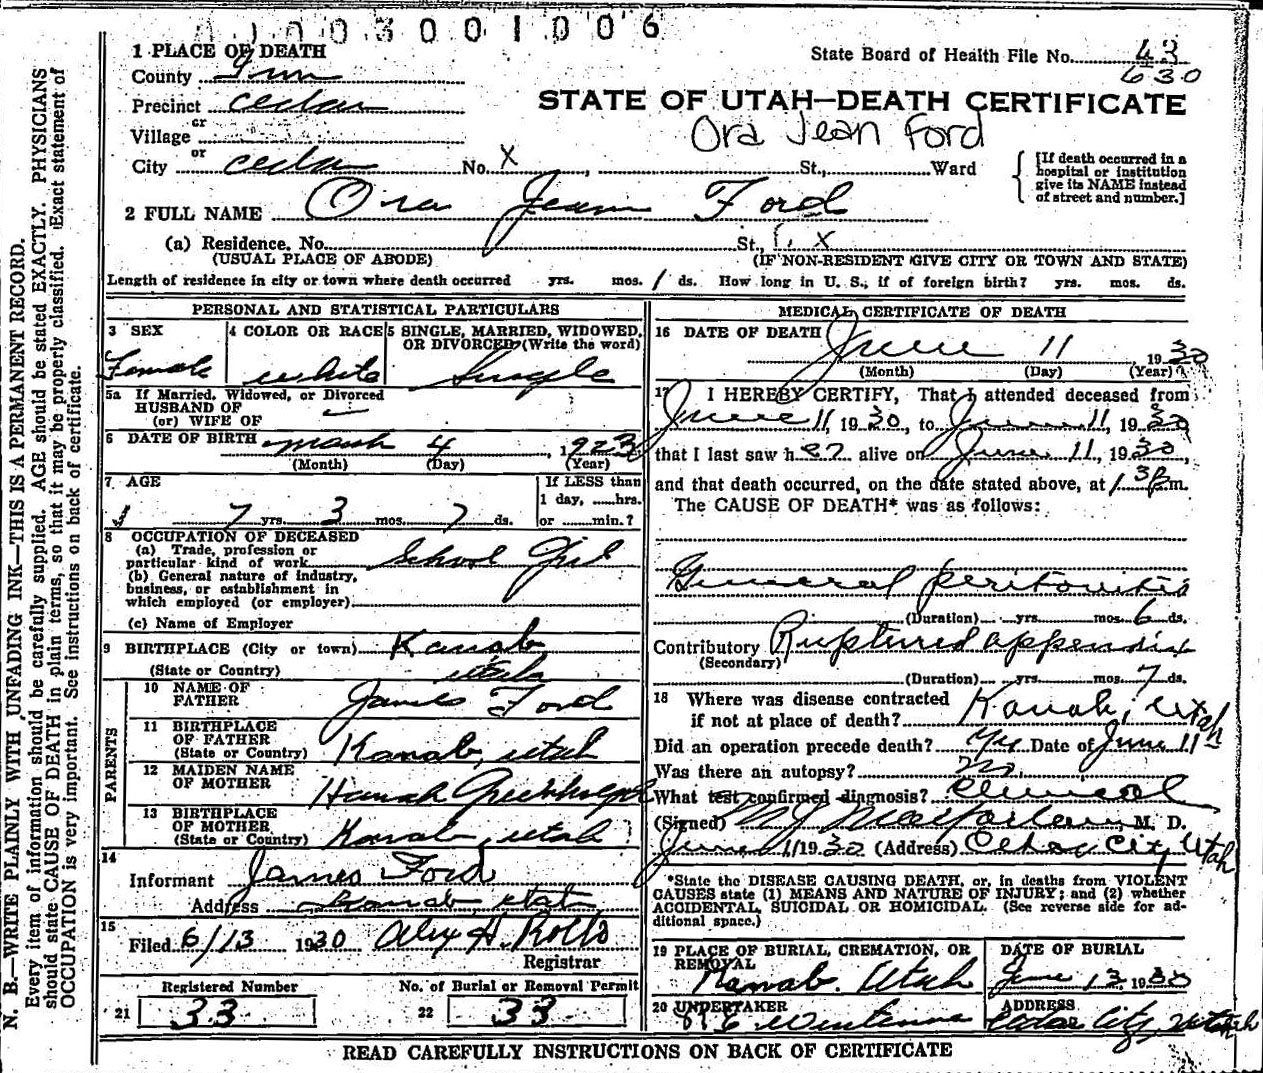 A 1 0 0 3 0 0 1 0 0 6
1 PLACE OF DEATH
State Board of Health File No. 43
630
County Iron
Precinct Cedar
STATE OF UTAH—DEATH CERTIFICATE
or
Village
Ora Jean Ford
or
City Cedar No. X St., Ward
[If death occurred in a hospital or institution give its NAME instead of street and number.]
2 FULL NAME Ora Jean Ford
(a) Residence. No. St., X
(USUAL PLACE OF ABODE) (IF NON-RESIDENT GIVE CITY OR TOWN AND STATE)
Length of residence in city or town where death occurred yrs. mos. 1 ds. How long in U. S., if of foreign birth? yrs. mos. ds.
PERSONAL AND STATISTICAL PARTICULARS
3 SEX
Female
4 COLOR OR RACE
white
5 SINGLE, MARRIED, WIDOWED, OR DIVORCED (Write the word)
Single
5a If Married, Widowed, or Divorced
HUSBAND OF
(or) WIFE OF
6 DATE OF BIRTH March 4, 1923
(Month) (Day) (Year)
7 AGE
7 yrs. 3 mos. 7 ds.
If LESS than
1 day, ......hrs.
or ......min.?
8 OCCUPATION OF DECEASED
(a) Trade, profession or
particular kind of work School Girl
(b) General nature of industry,
business, or establishment in
which employed (or employer)
(c) Name of Employer
9 BIRTHPLACE (City or town) Kanab
(State or Country) Utah
PARENTS
10 NAME OF
FATHER James Ford
11 BIRTHPLACE
OF FATHER
(State or Country) Kanab, Utah
12 MAIDEN NAME
OF MOTHER Hanah
13 BIRTHPLACE
OF MOTHER
(State or Country) Kanab, Utah
14
Informant James Ford
Address Kanab, Utah
15
Filed 6/13 1930 Alex H. Rollo
Registrar
Registered Number
21 33
No. of Burial or Removal Permit
22 33
MEDICAL CERTIFICATE OF DEATH
16 DATE OF DEATH June 11, 1930
(Month) (Day) (Year)
17 I HEREBY CERTIFY, That I attended deceased from
June 11, 1930, to June 11, 1930
that I last saw her alive on June 11, 1930,
and that death occurred, on the date stated above, at m.
The CAUSE OF DEATH* was as follows:
General peritonitis
(Duration) yrs. mos. 6 ds.
Contributory Ruptured appendix
(Secondary)
(Duration) yrs. mos. 7 ds.
18 Where was disease contracted
if not at place of death? Kanab, Utah
Did an operation precede death? Yes Date of June 11
Was there an autopsy? No
What test confirmed diagnosis? Clinical
(Signed) M J Macfarlane, M. D.
June 11 1930 (Address) Cedar City, Utah
*State the DISEASE CAUSING DEATH, or, in deaths from VIOLENT
CAUSES state (1) MEANS AND NATURE OF INJURY; and (2) whether
ACCIDENTAL, SUICIDAL OR HOMICIDAL. (See reverse side for ad-
ditional space.)
19 PLACE OF BURIAL, CREMATION, OR
REMOVAL
Kanab, Utah
DATE OF BURIAL
June 13 1930
20 UNDERTAKER
ADDRESS
Cedar City, Utah
READ CAREFULLY INSTRUCTIONS ON BACK OF CERTIFICATE
N. B.—WRITE PLAINLY WITH UNFADING INK—THIS IS A PERMANENT RECORD.
Every item of information should be carefully supplied. AGE should be stated EXACTLY. PHYSICIANS
should state CAUSE OF DEATH in plain terms, so that it may be properly classified. Exact statement of
OCCUPATION is very important. See instructions on back of certificate.